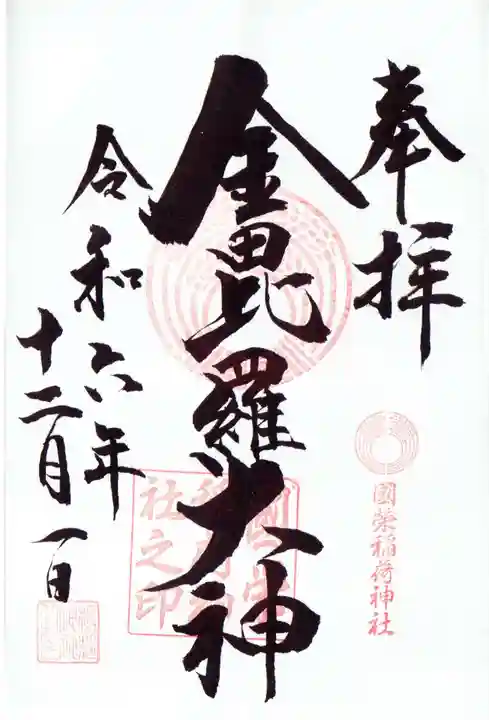 奉拝
國榮稲荷神社
金毘羅大神
國榮稲荷神社之印
令和六年
十二月一日